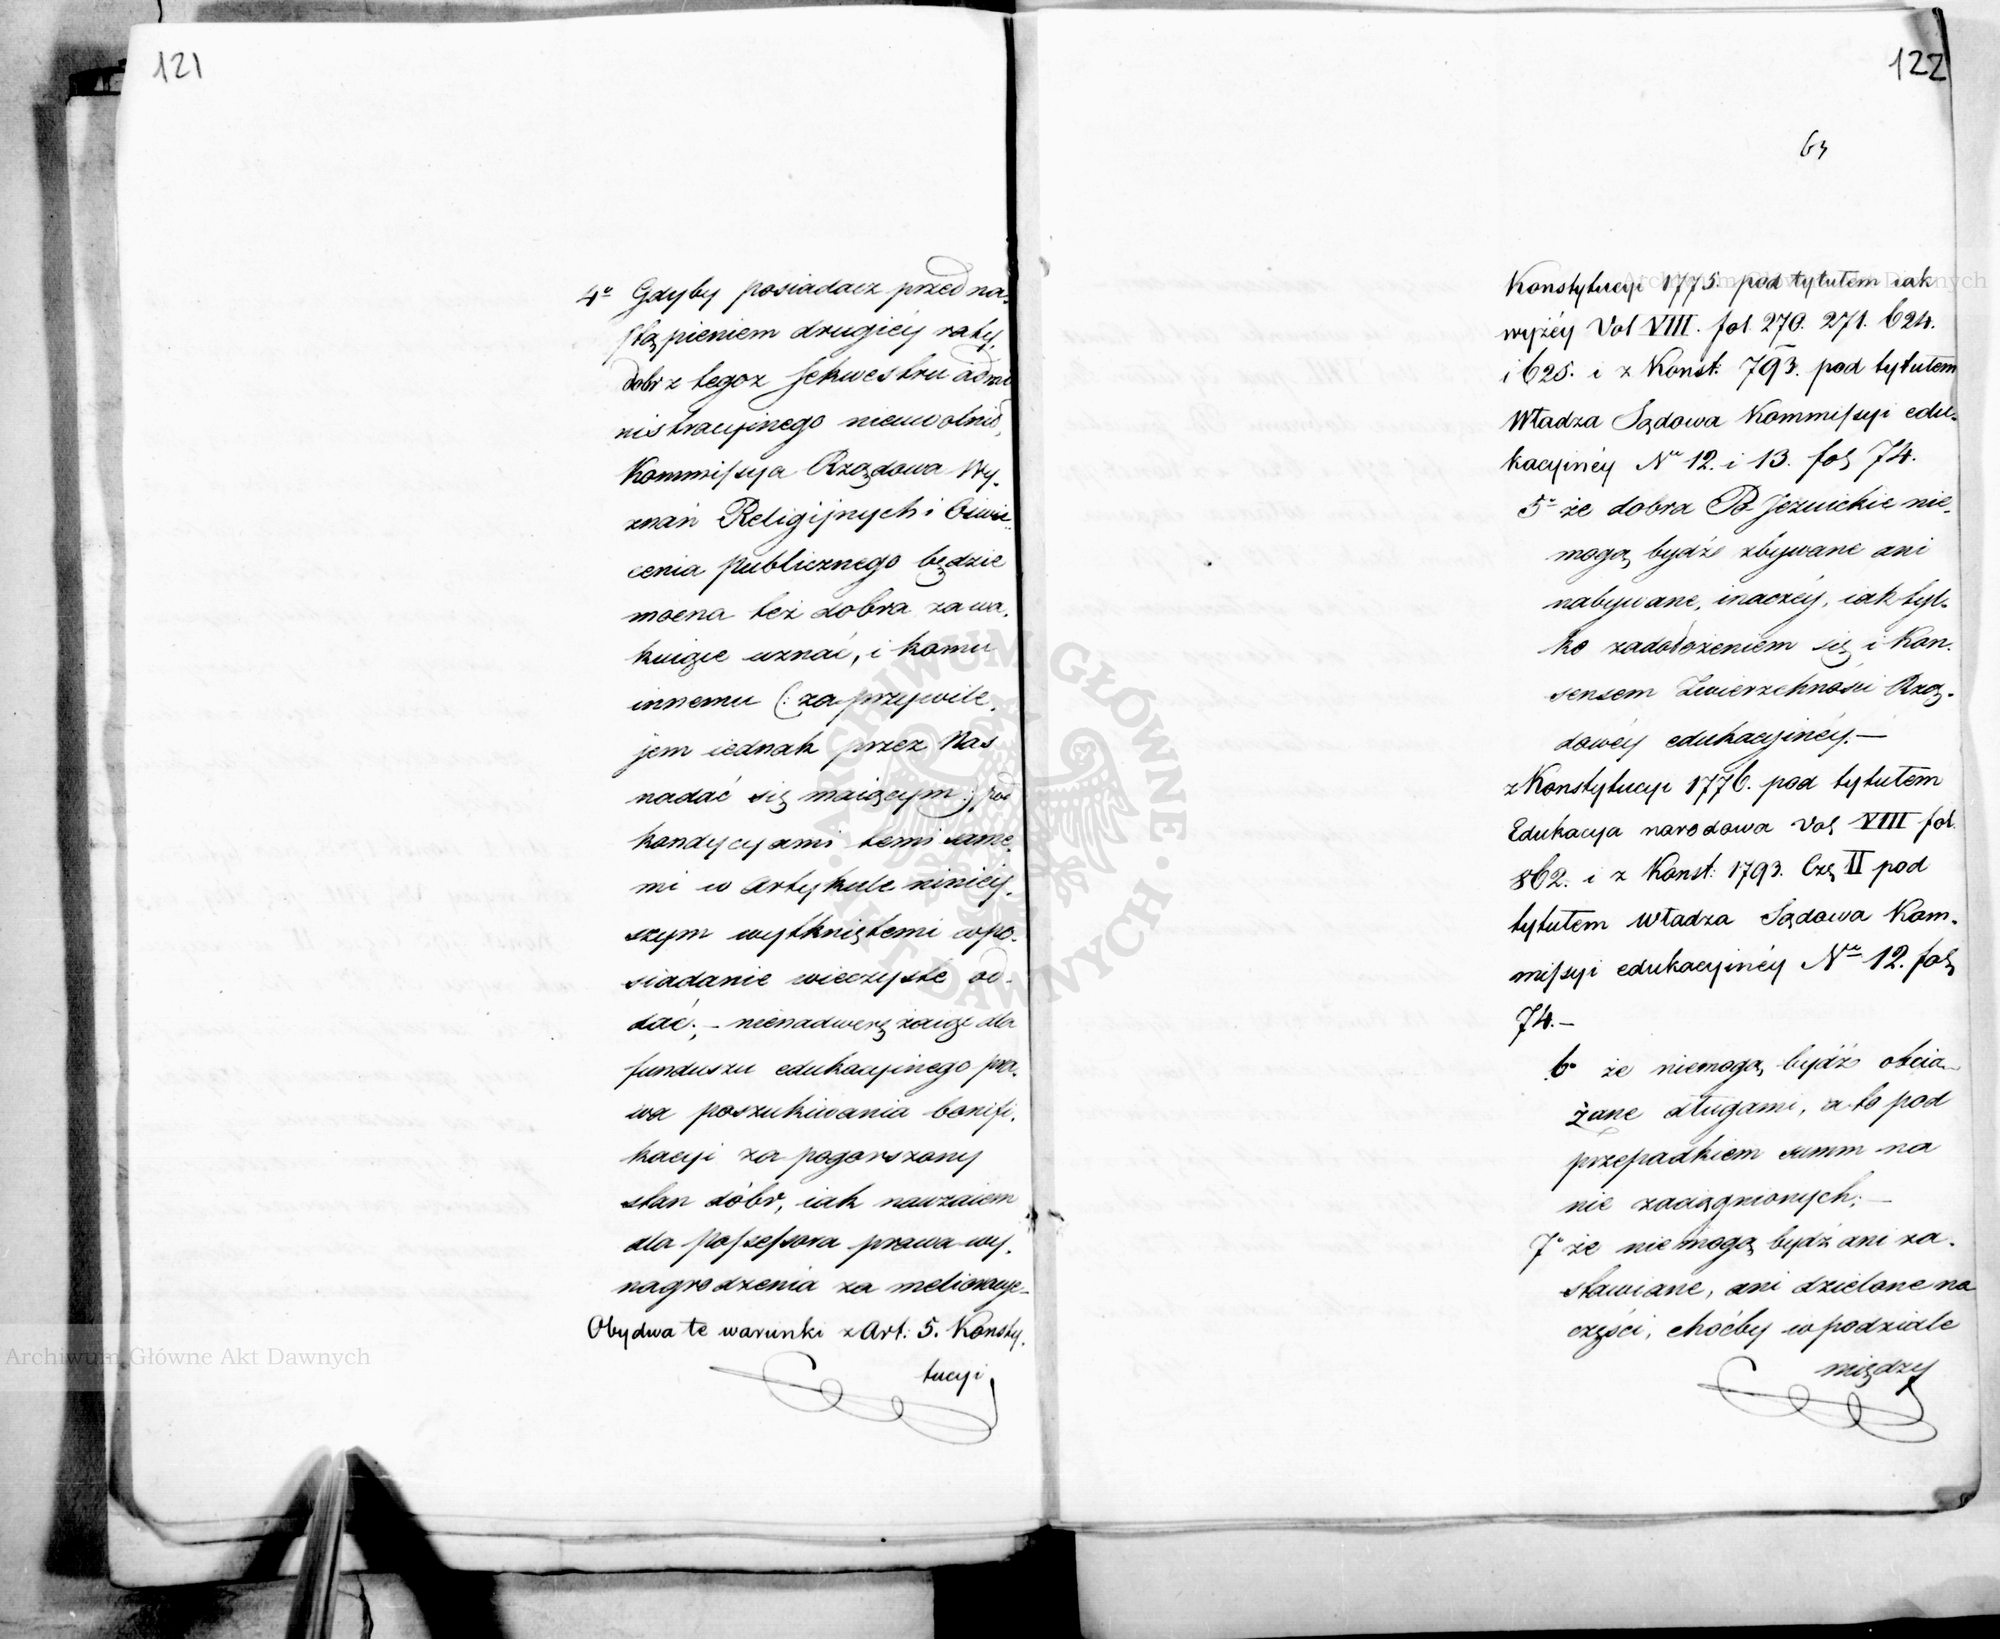 121
4º Gdyby posiadacz przed na-
stąpieniem drugiéy raty,
dobr z tegoż sekwestru admi
nistracyjnego nieuwolnił,
Kommissya Rządowa Wy-
znań Religijnych i Oświe-
cenia publicznego będzie
mocna też dobra za wa-
kuiące uznać, i komu
innemu (: za przywile-
jem iednak przez Nas
nadać się maiącym :) pod
kondycyami temi same-
mi w Artykule niniéy-
szym wytkniętemi w po-
siadanie wieczyste od-
dać; – nienadweręzaiąc dla
funduszu edukacyinego pra-
wa poszukiwania bonifi-
kacyi za pogorszony
stan dóbr, iak nawzaiem
dla possessora prawa wy-
nagrodzenia za melioracye
Obydwa te warunki z Art: 5. Konsty-
tucyi
122
63
Konstytucyi 1775. pod tytułem iak
wyżéy Vol VIII. fol. 270. 271. 624.
i 625. i z Konst: 793. pod tytułem
Władza Sądowa Kommissyi edu-
kacyinéy Nº 12. i 13. fol 74.
5º że dobra Po Jezuickie nie-
mogą bydźe zbywane ani
nabywane, inaczéy, iak tyl-
ko zadołożeniem się i Kon-
sensem Zwierzchności Rzą-
dowéy edukacyinéy. –
z Konstytucyi 1776. pod tytułem
Edukacya narodowa Vol VIII fol.
862. i z Konst: 1793. Czę II pod
tytułem Władza Sądowa Kom-
missyi edukacyinéy Nº 12. fol
74. –
6º że niemogą bydźe obcią-
żane długami, a to pod
przepadkiem summ na
nie zaciągnionych; –
7º że nie mogą bydź ani za-
stawiane, ani dzielone na
części, choćby w podziale
między
Archiwum Główne Akt Dawnych
Archiwum Główne Akt Dawnych
ARCHIWUM GŁÓWNE AKT DAWNYCH